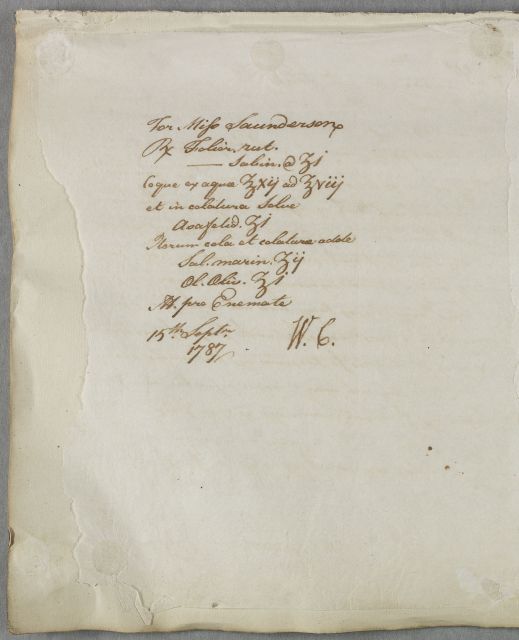 For Miss Saunderson
℞ Folior. rut.
—— Sabin. @ ʒj
Coque ex aqua ℥xij ad ℥viij
et in colatura Solve
Asafetid. ʒj
Iterum cola et colatura adde
Sal. marin. ʒij
Ol. Oliv. ℥j
M. pro Enemate
15th Septr.
1787
W. C.